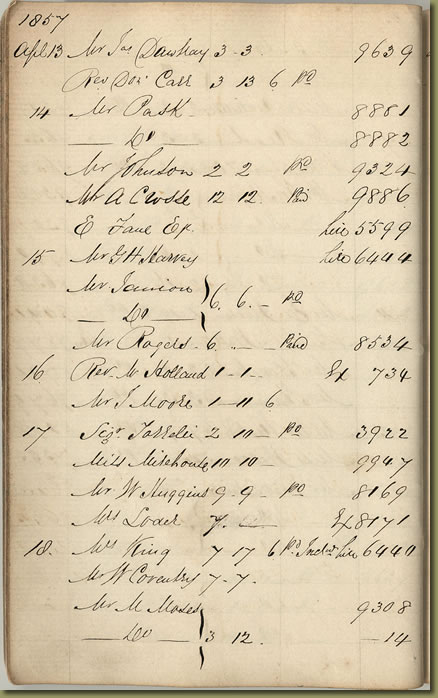 1857
Apl 13 Mr Jas Dawhay 3 - 3 - 9639
Revd Dor Carr 3 13 6 pd
14 Mr Pask 8881
— Do — 8882
Mr Johnson 2 2 pd 9324
Mr A Crosse 12 12 Paid 9886
E Fane Eq. hire 5599
15 Mr G H Harvey hire 6444
Mr Janion
— Do — 6. 6. – pd
Mr Rogers 6. — Paid 8534
16 Rev. W Holland 1 - 1 - Ex 734
Mr J Moore 1 - 11 6
17 Sigr 2 10 – pd 3922
Miss 10 10 – 9947
Mr W Huggins 9 - 9 - pd 8169
Mrs Loder 7. — Ex 8171
18. Mrs King 7 17 6 pd hire 6440
Mr W Coventry 7 - 7 -
Mr M Moses 9308
— Do — 3 12. – 14